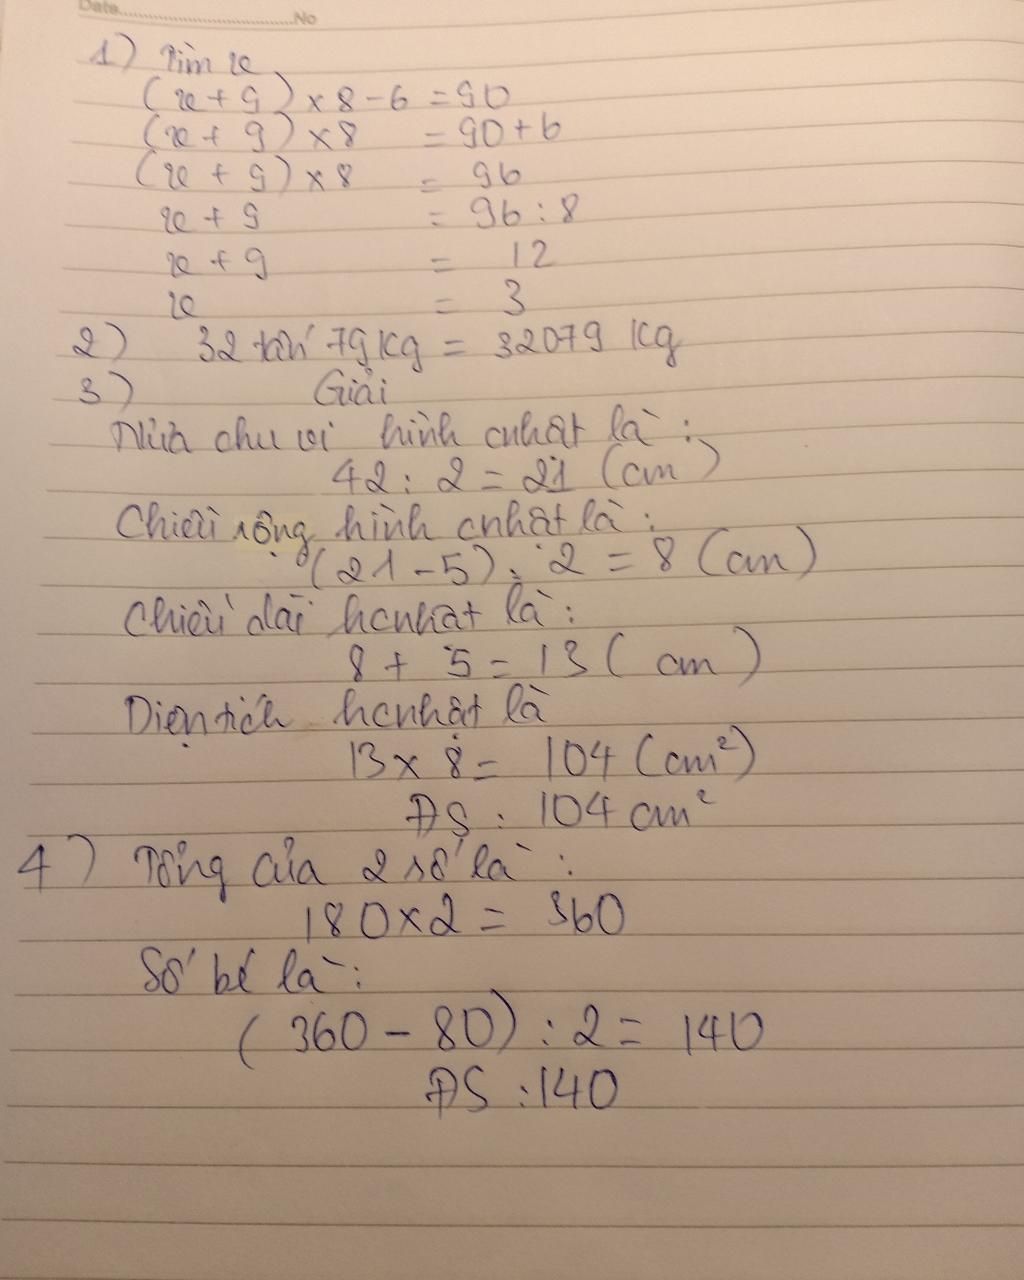 Date..............................No
1) Tìm x
(x + 9) x 8 - 6 = 90
(x + 9) x 8 = 90 + 6
(x + 9) x 8 = 96
x + 9 = 96 : 8
x + 9 = 12
x = 3
2) 32 tấn 79 kg = 32079 kg
3) Giải
Nửa chu vi hình cnhật là :
42 : 2 = 21 (cm)
Chiều rộng hình cnhật là :
(21 - 5) : 2 = 8 (cm)
Chiều dài hcnhật là :
8 + 5 = 13 (cm)
Diện tích hcnhật là
13 x 8 = 104 (cm²)
ĐS : 104 cm²
4) Tổng của 2 số là :
180 x 2 = 360
Số bé là :
(360 - 80) : 2 = 140
ĐS : 140